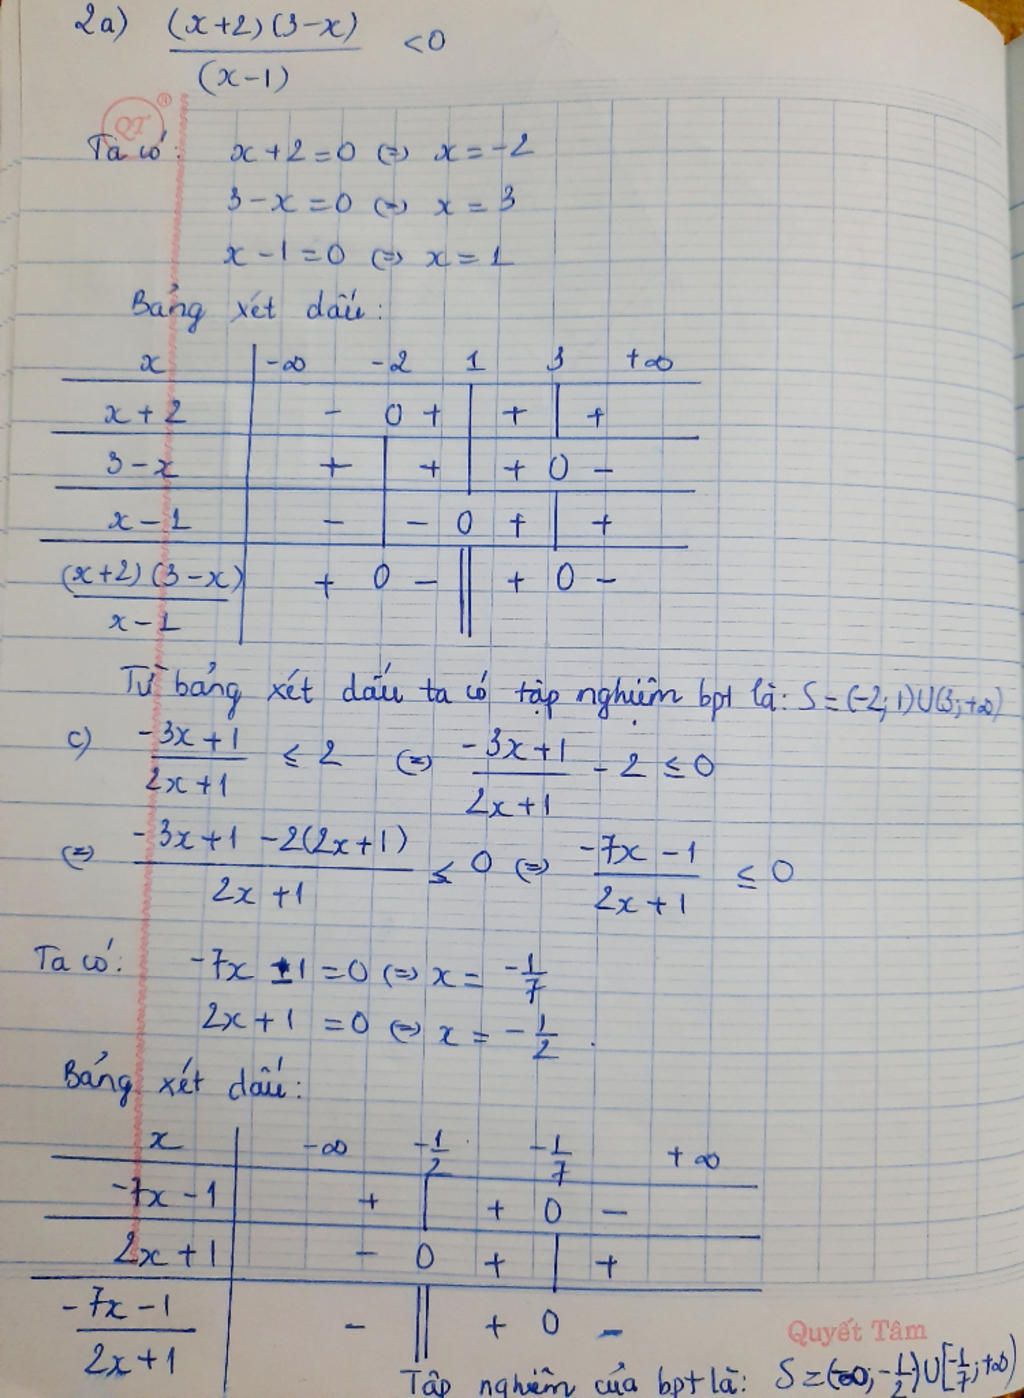 2a) (x+2)(3-x) / (x-1) < 0
QT ®
Ta có: x+2=0 (=) x=-2
3-x=0 (=) x=3
x-1=0 (=) x=1
Bảng xét dấu:
x | -∞ -2 1 3 +∞
x+2 - 0 + | + | +
3-x + | + | + 0 -
x-1 - | - 0 + | +
(x+2)(3-x) / x-1 | + 0 - || + 0 -
Từ bảng xét dấu ta có tập nghiệm bpt là: S=(-2;1)U(3;+∞)
c) -3x+1 / 2x+1 ≤ 2 (=) -3x+1 / 2x+1 - 2 ≤ 0
(=) -3x+1 -2(2x+1) / 2x+1 ≤ 0 (=) -7x-1 / 2x+1 ≤ 0
Ta có: -7x -1 =0 (=) x = -1/7
2x+1 =0 (=) x = -1/2.
Bảng xét dấu:
x | -∞ -1/2 -1/7 +∞
-7x-1 | + | + 0 -
2x+1 | - 0 + | +
-7x-1 / 2x+1 | - || + 0 -
Quyết Tâm
Tập nghiệm của bpt là: S=(-∞;-1/2)U[-1/7;+∞)